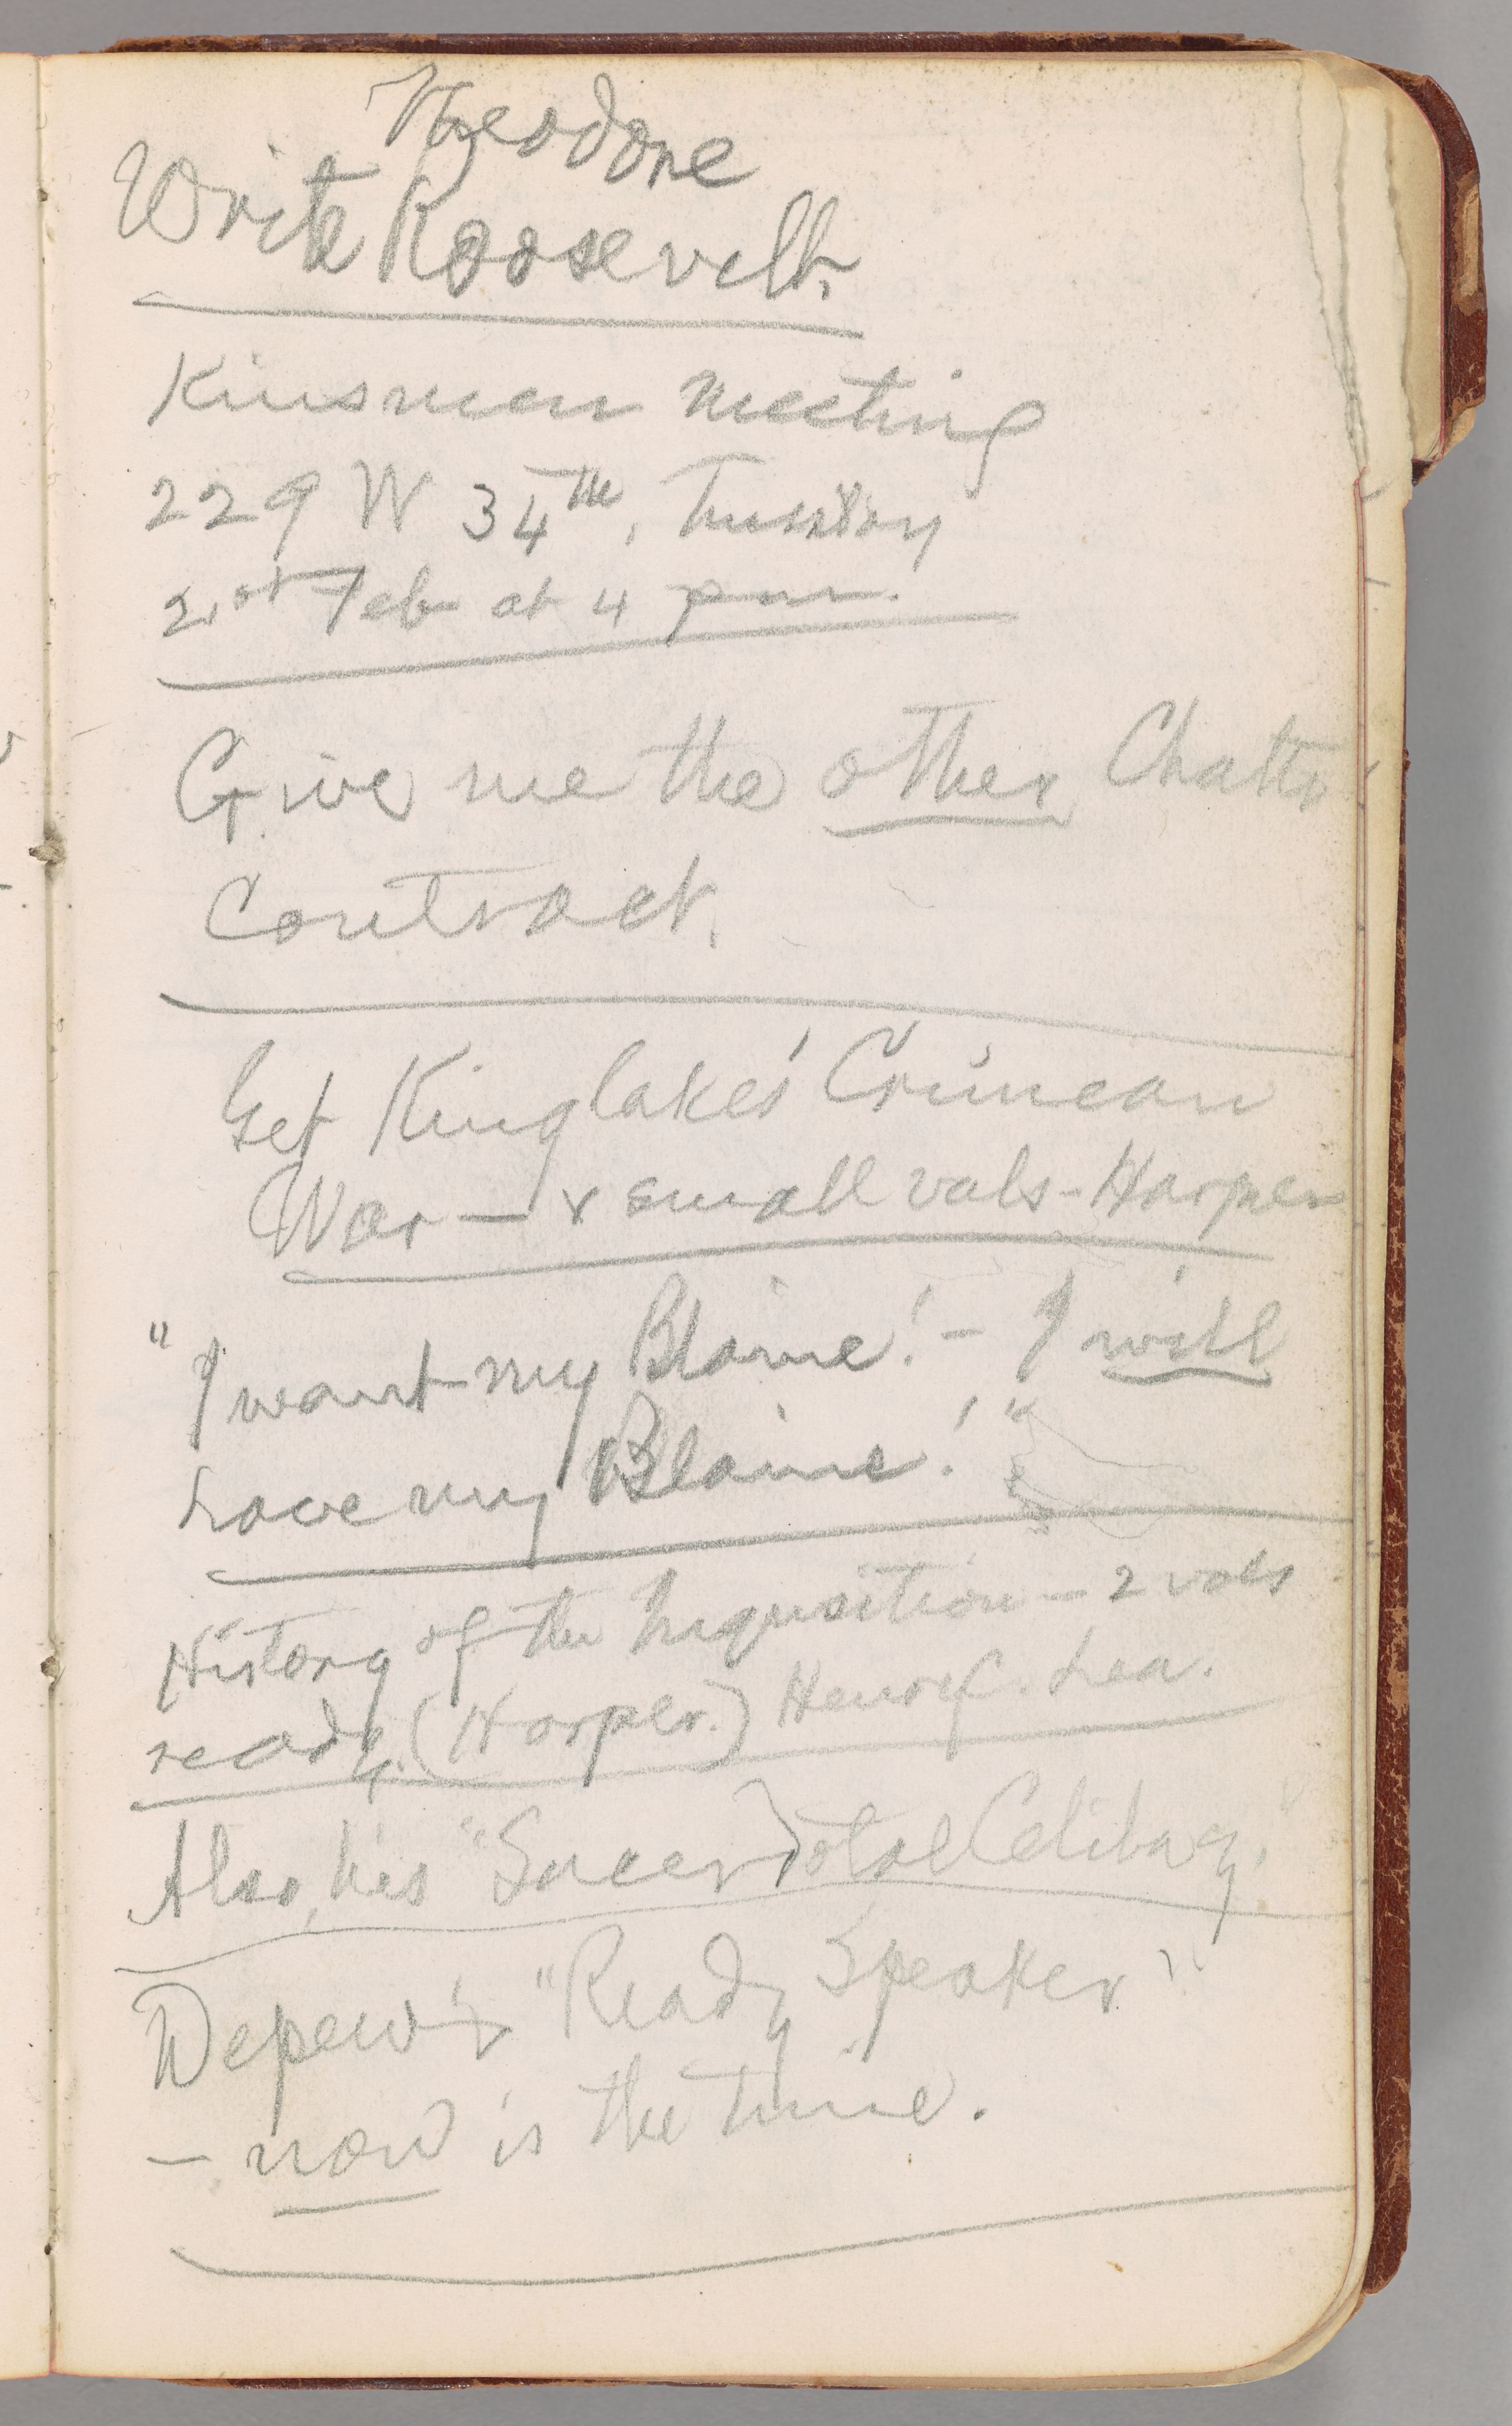 Theodore
Write Roosevelt.
Kinsmen meeting
229 W 34th, Tuesday
21st Feb at 4 pm.
Give me the other Chatto
Contract.
Get Kinglake's Crimean
War — & small vols - Harper
"I want my Blaine! - I will
have my Blaine!"
History of the Inquisition — 2 vols
ready. (Harper.) Henry C. Lea.
Also, his "Sacerdotal Celibacy."
Depew's "Ready Speaker"
— now is the time.